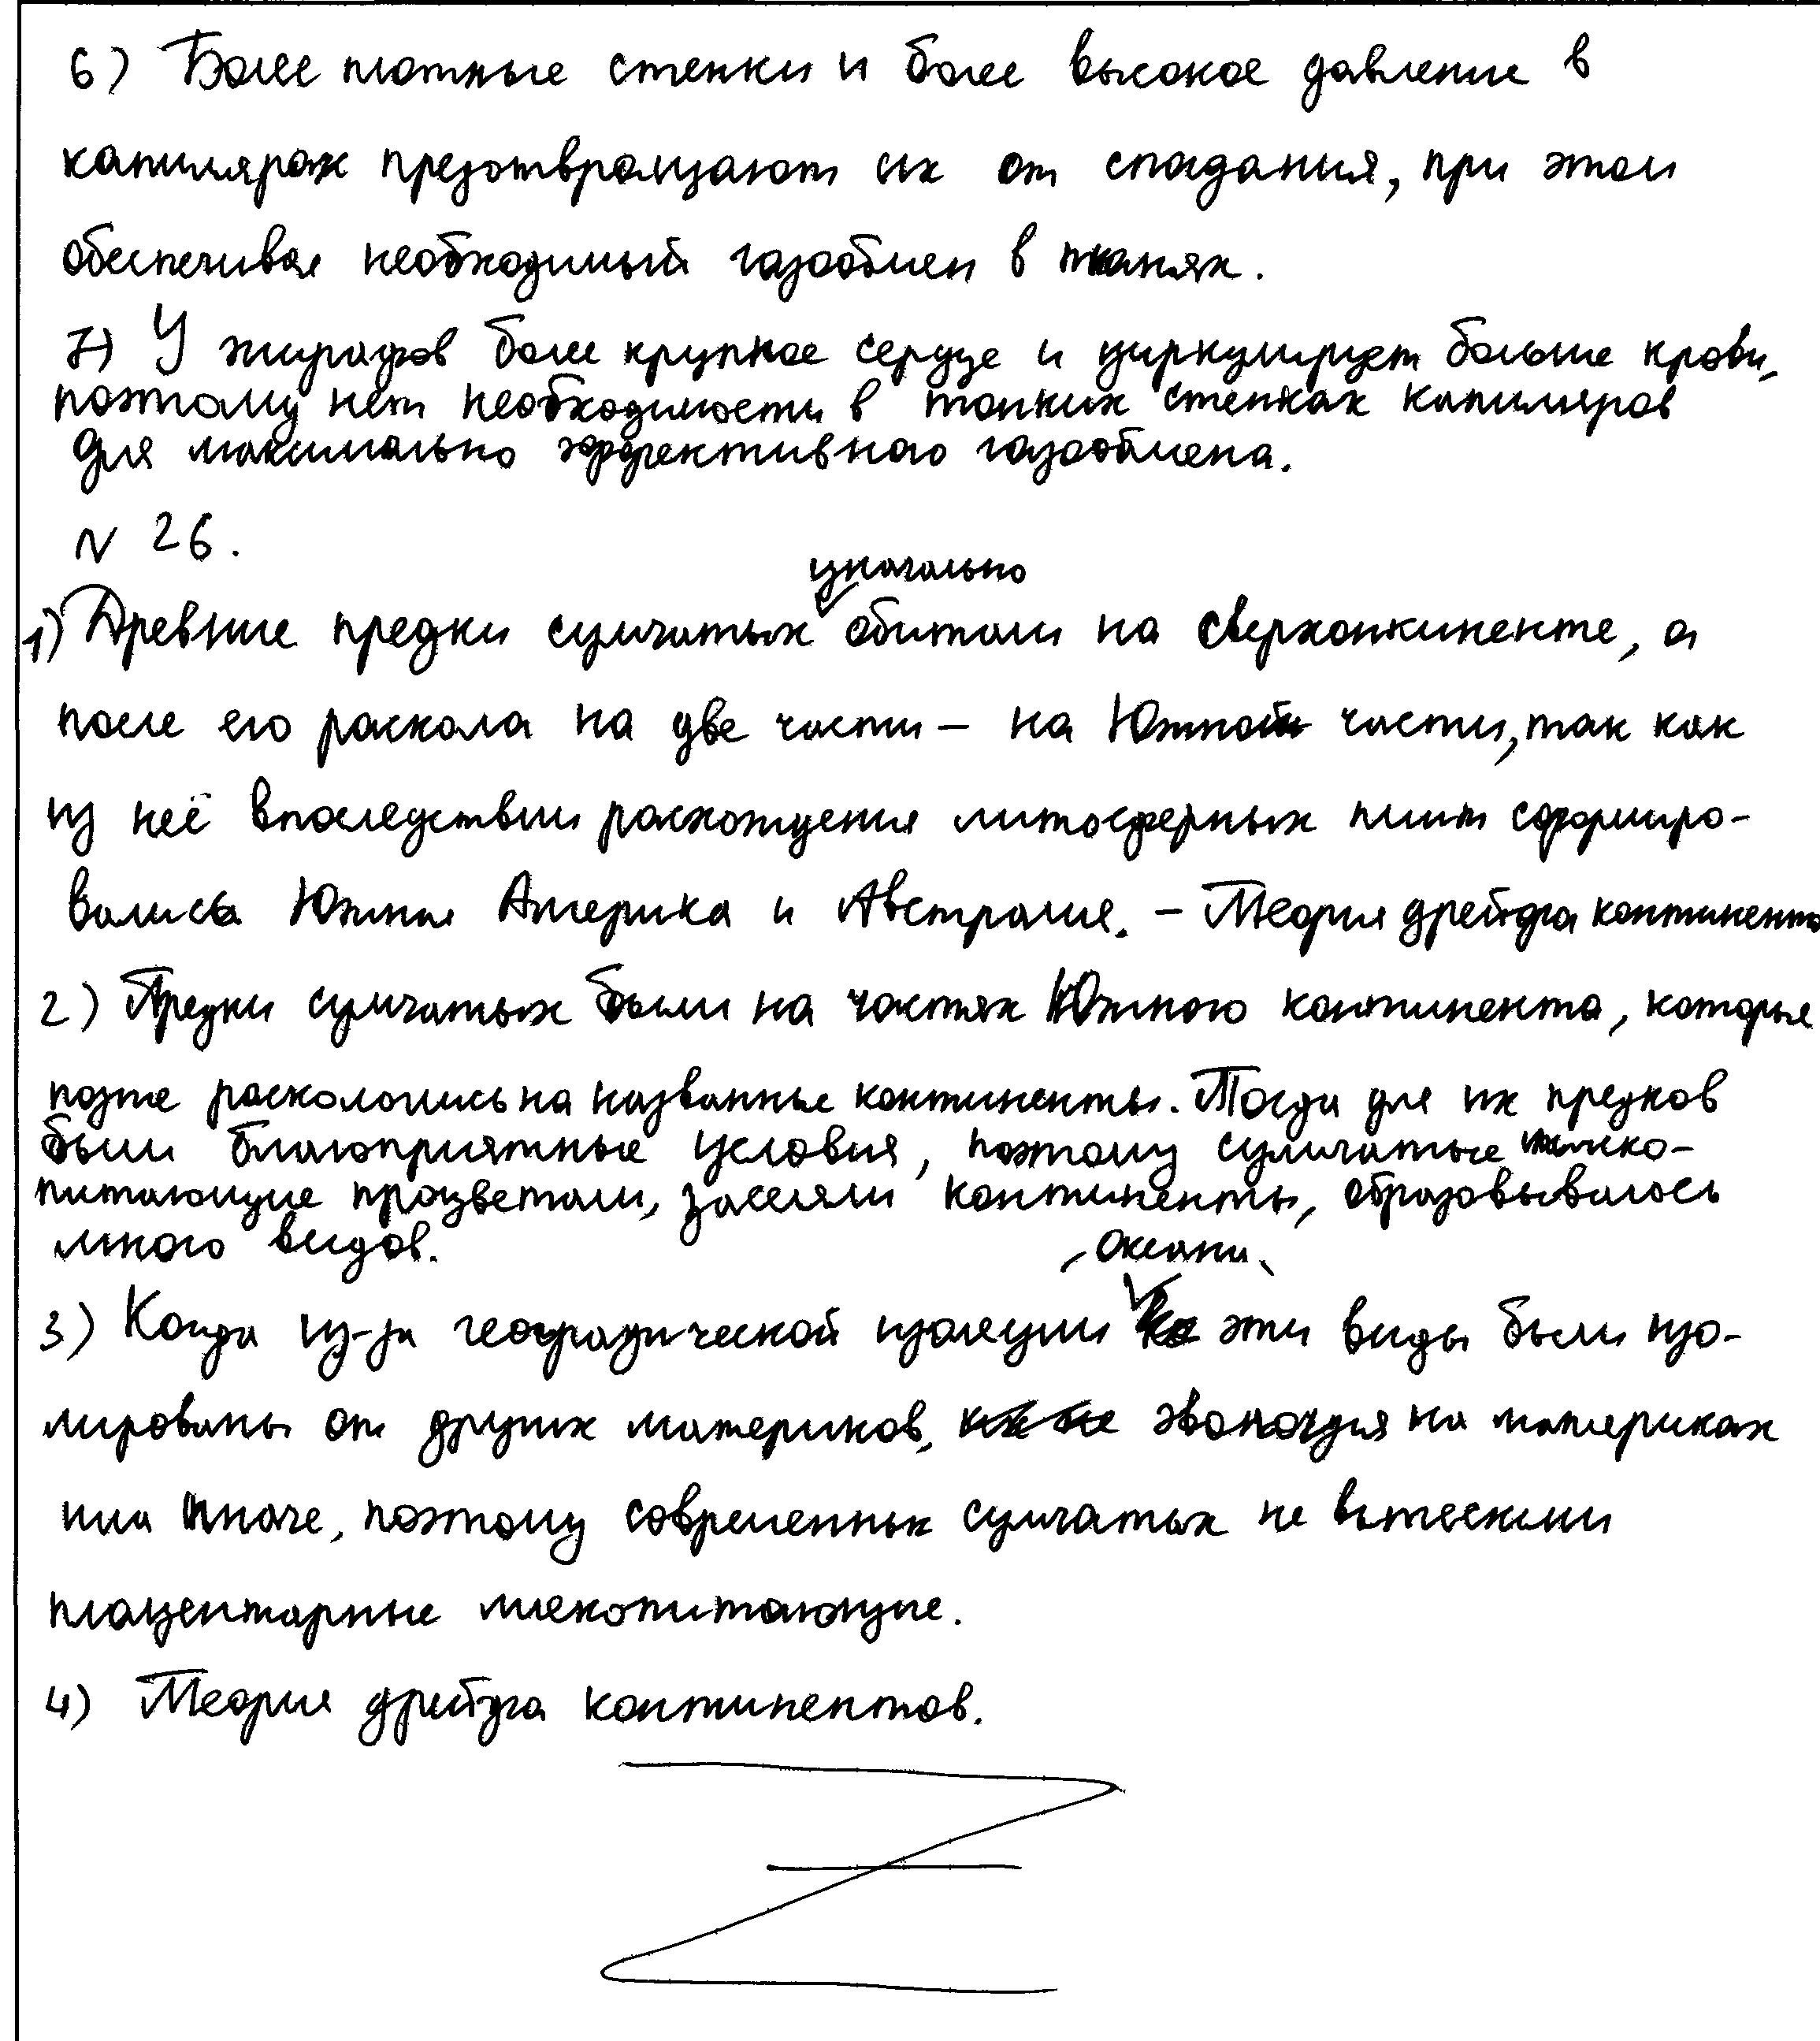 6) Более плотные стенки и более высокое давление в
капилярах предотвращают их от спадания, при этом
обеспечивая необходимый газообмен в тканях.
7) У жирафов более крупное сердце и циркулирует больше крови,
поэтому нет необходимости в тонких стенках капиляров
для максимально эффективного газообмена.
N 26.
изначально
1) Древние предки сумчатых обитали на сверхконтиненте, а
после его раскола на две части – на Южной части, так как
из неё впоследствии расхождения литосферных плит сформиро-
вались Южная Америка и Австралия. – Теория дрейфа континенто
2) Предки сумчатых были на частях Южного континента, которые
позже раскололись на названные континенты. Тогда для их предков
были благоприятные условия, поэтому сумчатые млеко-
питающие процветали, заселяли континенты, образовывалось
много видов.
, океана,
3) Когда из-за географической изоляции эти виды были изо-
лированы от других материков, эволюция на материках
шла иначе, поэтому современных сумчатых не вытеснили
плацентарные млекопитающие.
4) Теория дрейфа континентов.